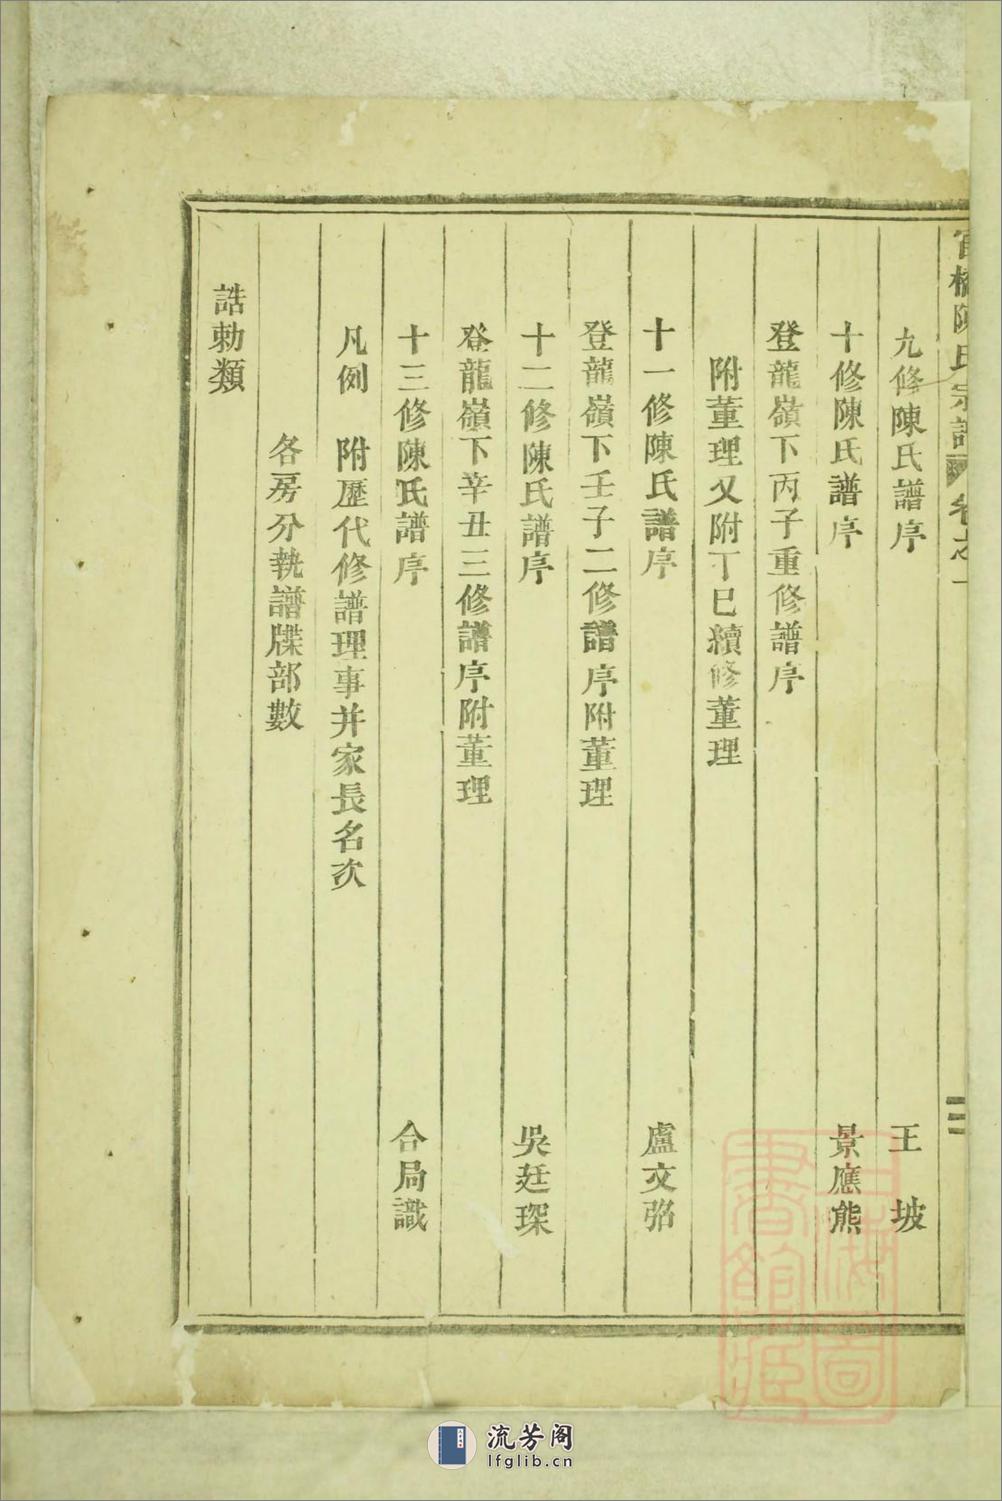 官橋陳氏宗譜 卷之一 二
九修陳氏譜序 王坡
十修陳氏譜序 景應熊
登龍嶺下丙子重修譜序
附董理又附丁巳續修董理
十一修陳氏譜序 盧文弨
登龍嶺下壬子二修譜序附董理
十二修陳氏譜序 吳廷琛
登龍嶺下辛丑三修譜序附董理
十三修陳氏譜序 合局識
凡例 附歷代修譜理事并家長名次
各房分執譜牒部數
誥勅類
上海圖書館藏
流芳阁
lfglib.cn